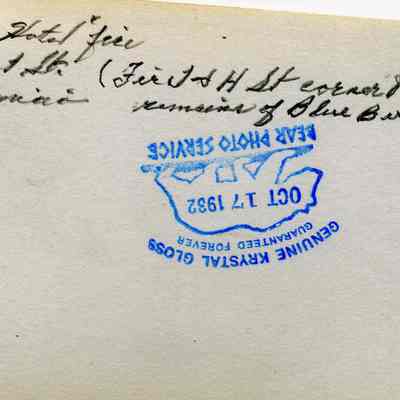 Hotel" fire
St. (Fir I & H St corner
remains of Blue
BEAR PHOTO SERVICE
OCT 17 1932
GUARANTEED FOREVER
GENUINE KRYSTAL GLOSS